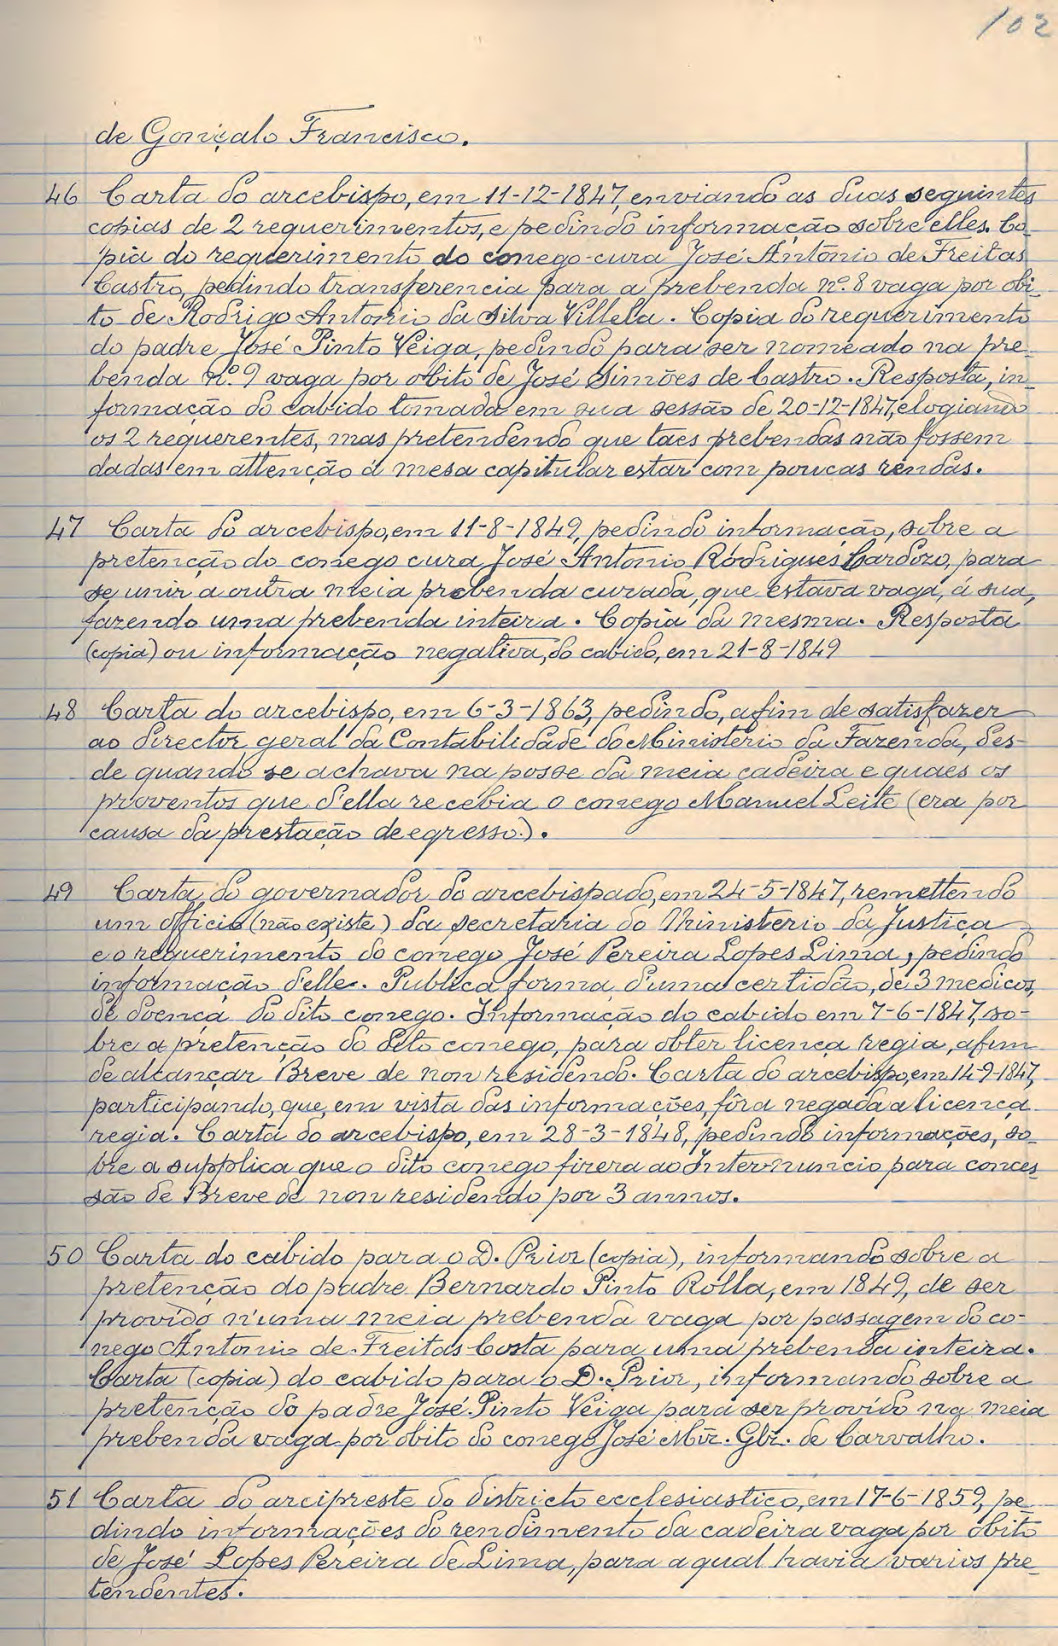 102
de Gonçalo Francisco.
46 Carta do arcebispo, em 11-12-1847, enviando as duas seguintes
copias de 2 requerimentos, e pedindo informação sobre elles. Co-
pia do requerimento do conego-cura José Antonio de Freitas
Castro, pedindo transferencia para a prebenda nº. 8 vaga por obi-
to de Rodrigo Antonio da Silva Villela. Copia do requerimento
do padre José Pinto Veiga, pedindo para ser nomeado na pre-
benda nº. 9 vaga por obito de José Simões de Castro. Resposta, in-
formação do cabido tomada em sua sessão de 20-12-1847, elogiando
os 2 requerentes, mas pretendendo que taes prebendas não fossem
dadas em attenção á mesa capitular estar com poucas rendas.
47 Carta do arcebispo, em 11-8-1849, pedindo informação, sobre a
pretenção do conego cura José Antonio Rodrigues Cardozo, para
se unir a outra meia prebenda curada, que estava vaga, á sua,
fazendo uma prebenda inteira. Copia da mesma. Resposta
(copia) ou informação negativa, do cabido, em 21-8-1849
48 Carta do arcebispo, em 6-3-1863, pedindo, afim de satisfazer
ao director geral da Contabilidade do Ministerio da Fazenda, des-
de quando se achava na posse da meia cadeira e quaes os
proventos que d'ella recebia o conego Manuel Leite (era por
causa da prestação de egresso).
49 Carta do governador do arcebispado, em 24-5-1847, remettendo
um officio (não existe) da secretaria do Ministerio da Justiça
e o requerimento do conego José Pereira Lopes Lima, pedindo
informação d'elle. Publica forma, d'uma certidão, de 3 medicos,
de doença do dito conego. Informação do cabido em 7-6-1847, so-
bre a pretenção do dito conego, para obter licença regia, afim
de alcançar Breve de non residendo. Carta do arcebispo, em 14-9-1847,
participando, que, em vista das informações, fôra negada a licença
regia. Carta do arcebispo, em 28-3-1848, pedindo informações, so-
bre a supplica que o dito conego fizera ao Internuncio para conces-
são de Breve de non residendo por 3 annos.
50 Carta do cabido para o D. Prior (copia), informando sobre a
pretenção do padre Bernardo Pinto Rolla, em 1849, de ser
provido n'uma meia prebenda vaga por passagem do co-
nego Antonio de Freitas Costa para uma prebenda inteira.
Carta (copia) do cabido para o D. Prior, informando sobre a
pretenção do padre José Pinto Veiga para ser provido na meia
prebenda vaga por obito do conego José Mir. Glz. de Carvalho.
51 Carta do arcipreste do districto ecclesiastico, em 17-6-1859, pe-
dindo informações do rendimento da cadeira vaga por obito
de José Lopes Pereira de Lima, para a qual havia varios pre-
tendentes.